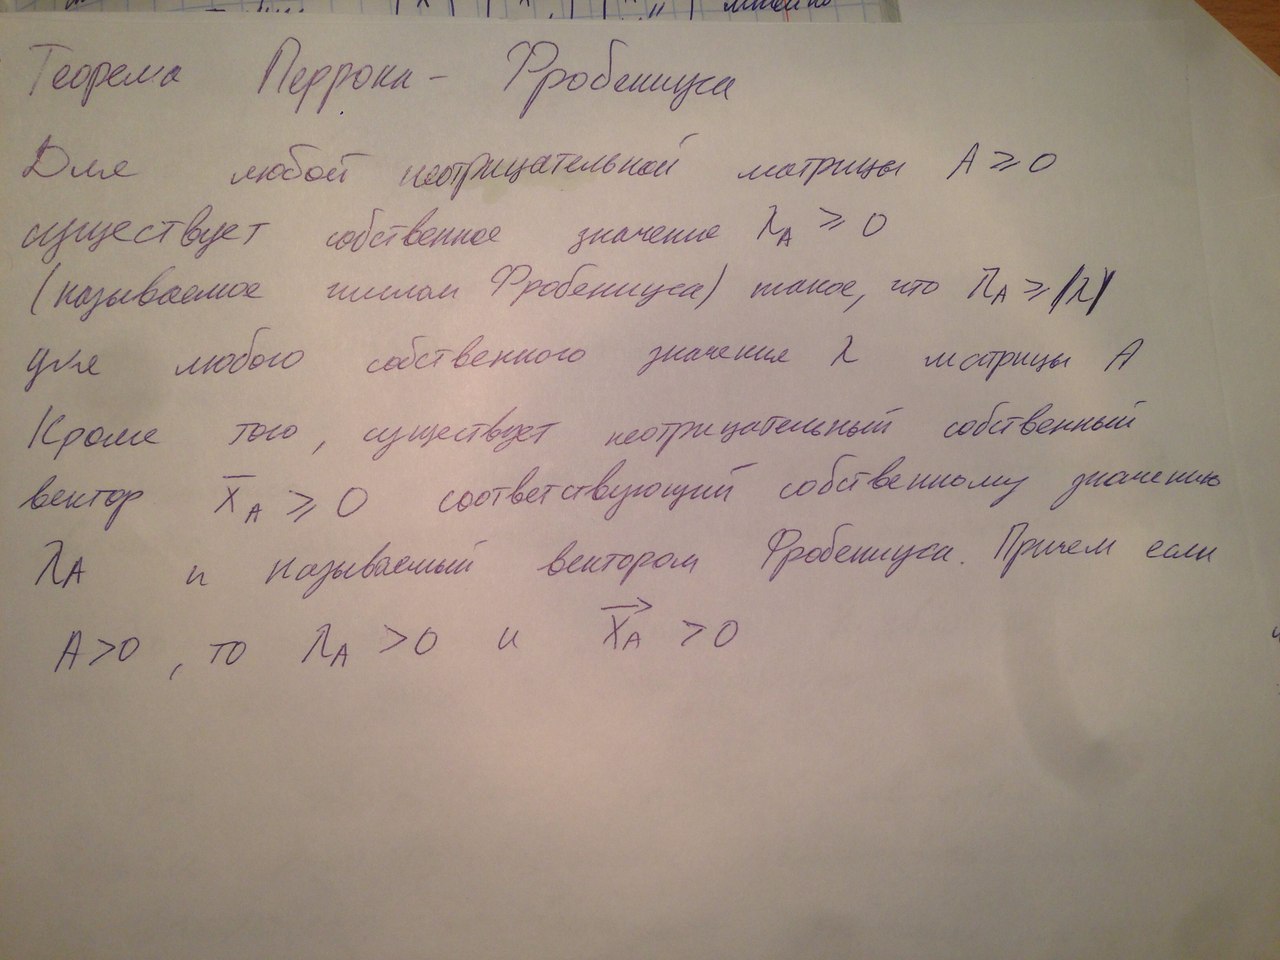 Теорема Перрона - Фробениуса
Для любой неотрицательной матрицы A ≥ 0
существует собственное значение λ_A ≥ 0
(называемое числом Фробениуса) такое, что λ_A ≥ |λ|
для любого собственного значения λ матрицы A
Кроме того, существует неотрицательный собственный
вектор x̅_A ≥ 0 соответствующий собственному значению
λ_A и называемый вектором Фробениуса. Причем если
A > 0, то λ_A > 0 и x⃗_A > 0